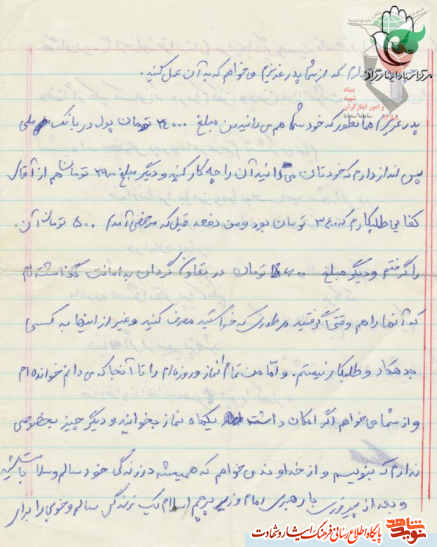 دارم که از شما پدر عزیزم می‌خواهم که به آن عمل کنید.
پدر عزیزم همانطور که خود شما هم می‌دانید من مبلغ ۲۴۰۰۰ تومان پول در بانک ملی
پس انداز دارم که خودتان می‌دانید آن را چه کار کنید و دیگر مبلغ ۲۹۰۰ تومان هم از آقای
کفایی طلبکارم که ۳۴۰۰ تومان بود و من دفعه قبل که مرخصی آمدم ۵۰۰ تومان آن
را گرفتم و دیگر مبلغ تومان در تعاون گردان به امانت گذاشته‌ام
که آنها را هم وقتی گرفتید هر طوری که خواستید مصرف کنید و غیر از اینها به کسی
بدهکار و طلبکار نیستم. و اما من تمام نماز و روزه‌ام را تا آنجا که می‌دانم خوانده‌ام
و از شما می‌خواهم اگر امکان داشت یکماه نماز بخوانید و دیگر چیز بخصوصی
ندارم که بنویسم و از خداوند می‌خواهم که همیشه در زندگی خود سالم و سلامت باشید
و بعد از پیروزی با رهبری امام و زیر پرچم اسلام یک زندگی سالم و خوبی را برای
مرکز اسناد ایثارگران
بنیاد
شهید
و امور ایثارگران
نوید شاهد
پایگاه اطلاع رسانی فرهنگ ایثار و شهادت